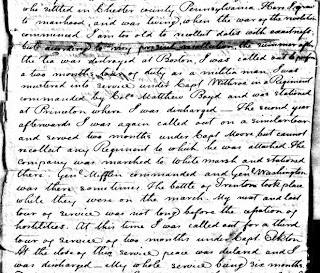 who settled in Chester county Pennsylvania. Here I grew
to manhood, and was living, when the war of the revolution
commenced I am too old to recollect dates with exactness,
but according to my present recollection the summer after
the tea was destroyed at Boston, I was called out to perform
a two months tour of duty as a militia man, I was
mustered into service under Capt Withrow in a Regiment
commanded by Col. Matthew Boyd and was stationed
at Princeton where I was discharged — The second year
afterwards I was again called out on a similar tour
and served two months under Capt Moore but cannot
recollect any Regiment to which he was attached The
company was marched to White marsh and stationed
there. Genl Mifflin commanded and Genl Washington
was there sometimes. The battle of Trenton took place
while they were on the march. My next and last
tour of service was not long before the cessation of
hostilities. At this time I was called out for a third
tour of service of two months under Capt
At the close of this service peace was declared and I
was discharged — My whole service being six months